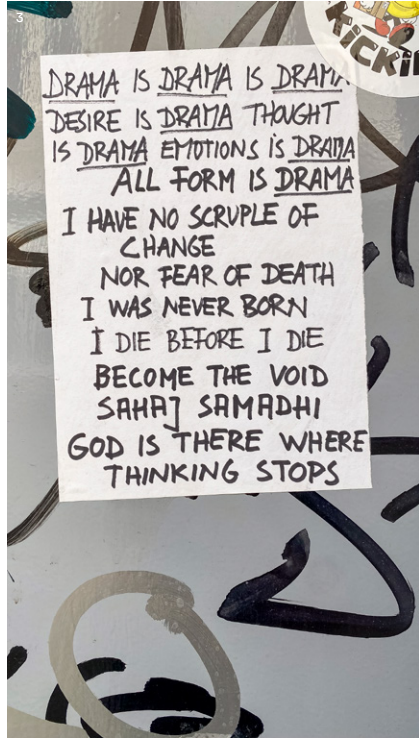 3
KICKI
DRAMA IS DRAMA IS DRAMA
DESIRE IS DRAMA THOUGHT
IS DRAMA EMOTIONS IS DRAMA
ALL FORM IS DRAMA
I HAVE NO SCRUPLE OF
CHANGE
NOR FEAR OF DEATH
I WAS NEVER BORN
I DIE BEFORE I DIE
BECOME THE VOID
SAHAJ SAMADHI
GOD IS THERE WHERE
THINKING STOPS